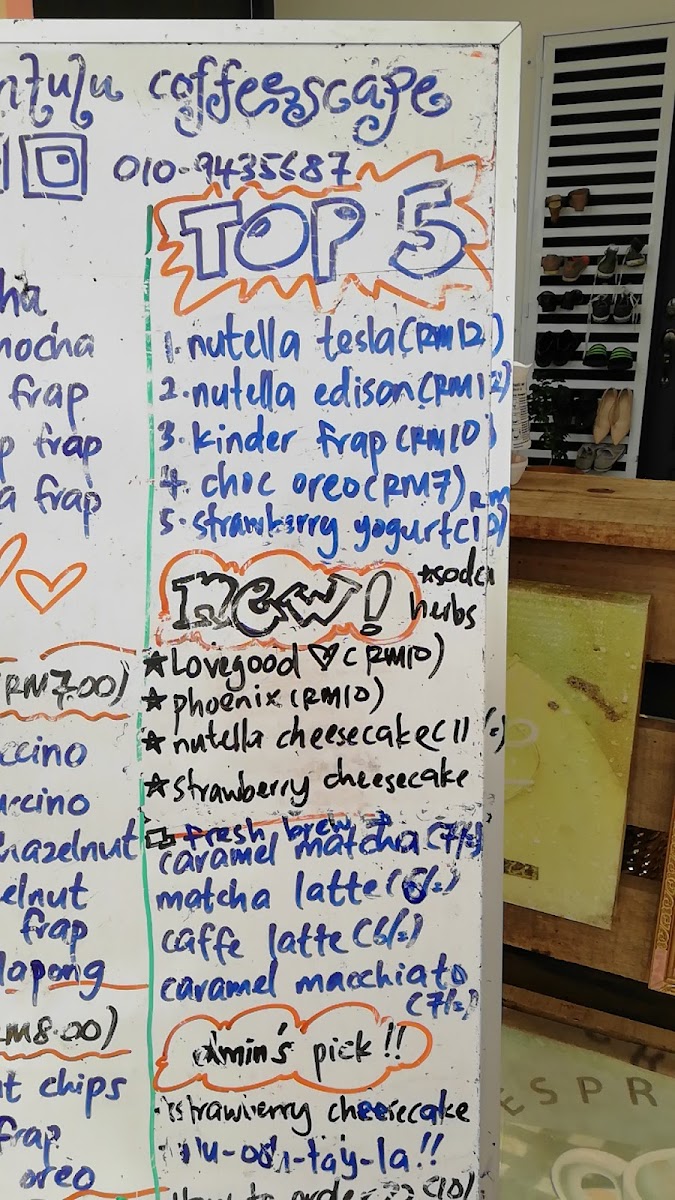 ntulu coffeescape
010-9435687
TOP 5
1. nutella tesla (RM12)
2. nutella edison (RM12)
3. kinder frap (RM10)
4. choc oreo (RM7)
5. strawberry yogurt (RM10)
new! *soda
herbs
★ Lovegood ♡ (RM10)
★ phoenix (RM10)
★ nutella cheesecake (11/=)
★ strawberry cheesecake
fresh brew
caramel matcha (7/=)
matcha latte (6/=)
caffe latte (6/=)
caramel macchiato
(7/=)
admin's pick!!
strawberry cheesecake
-tay-la!!
how to order??
ha
mocha
frap
p frap
a frap
(RM7.00)
ccino
uccino
hazelnut
elnut
frap
lapong
RM8.00)
t chips
frap
oreo
ESPR